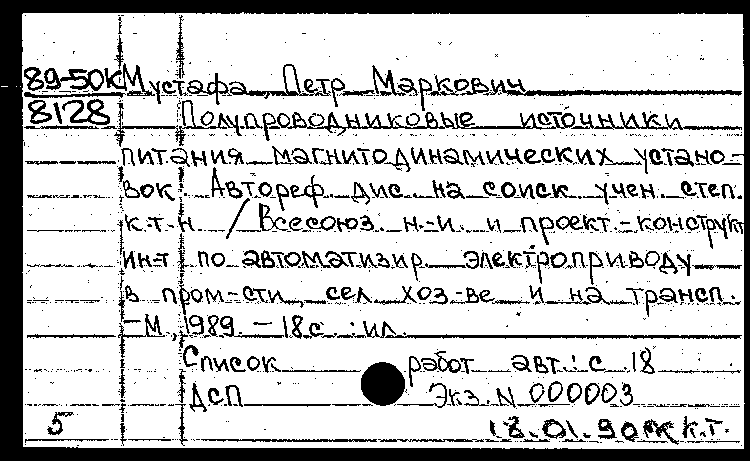 89-50к Мустафа, Петр Маркович
8128 Полупроводниковые источники
питания магнитодинамических устано-
вок. Автореф. дис. на соиск. учен. степ.
к.т.н. / Всесоюз. н.-и. и проект.-конструкт.
ин-т по автоматизир. электроприводу
в пром-сти, сел. хоз-ве и на трансп.
-М., 1989. - 18 с. : ил.
Список работ авт.: с. 18
ДСП Экз. N 000003
5 18.01.90 к.т.